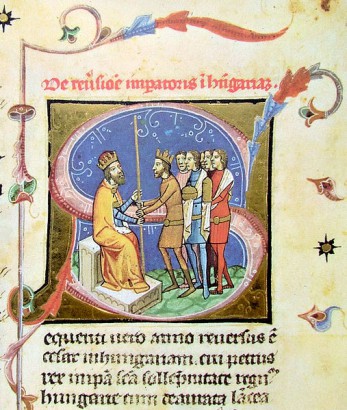 De reũsiõe imꝑatoris ĩ hũgariaʒ.
Sequenti uero anno reuersus ẽ
cesar inhungariam. cui petrus
rex inip̃a sc̃a sollẽpnitate regnũ
hungarie cum deaurata lãcea